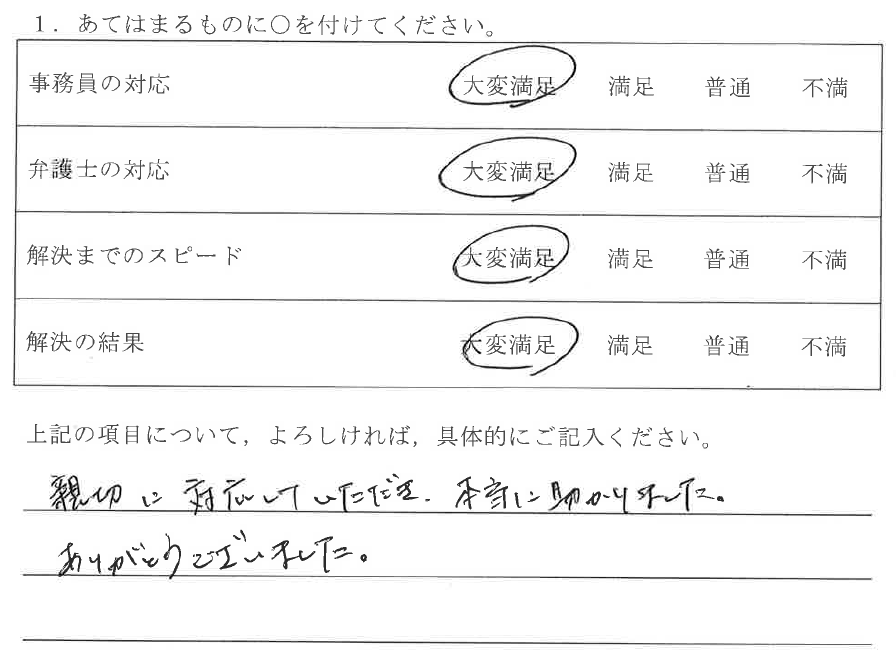 1．あてはまるものに○を付けてください。
事務員の対応 大変満足 満足 普通 不満
弁護士の対応 大変満足 満足 普通 不満
解決までのスピード 大変満足 満足 普通 不満
解決の結果 大変満足 満足 普通 不満
上記の項目について，よろしければ，具体的にご記入ください。
親切に対応していただき、本当に助かりました。
ありがとうございました。